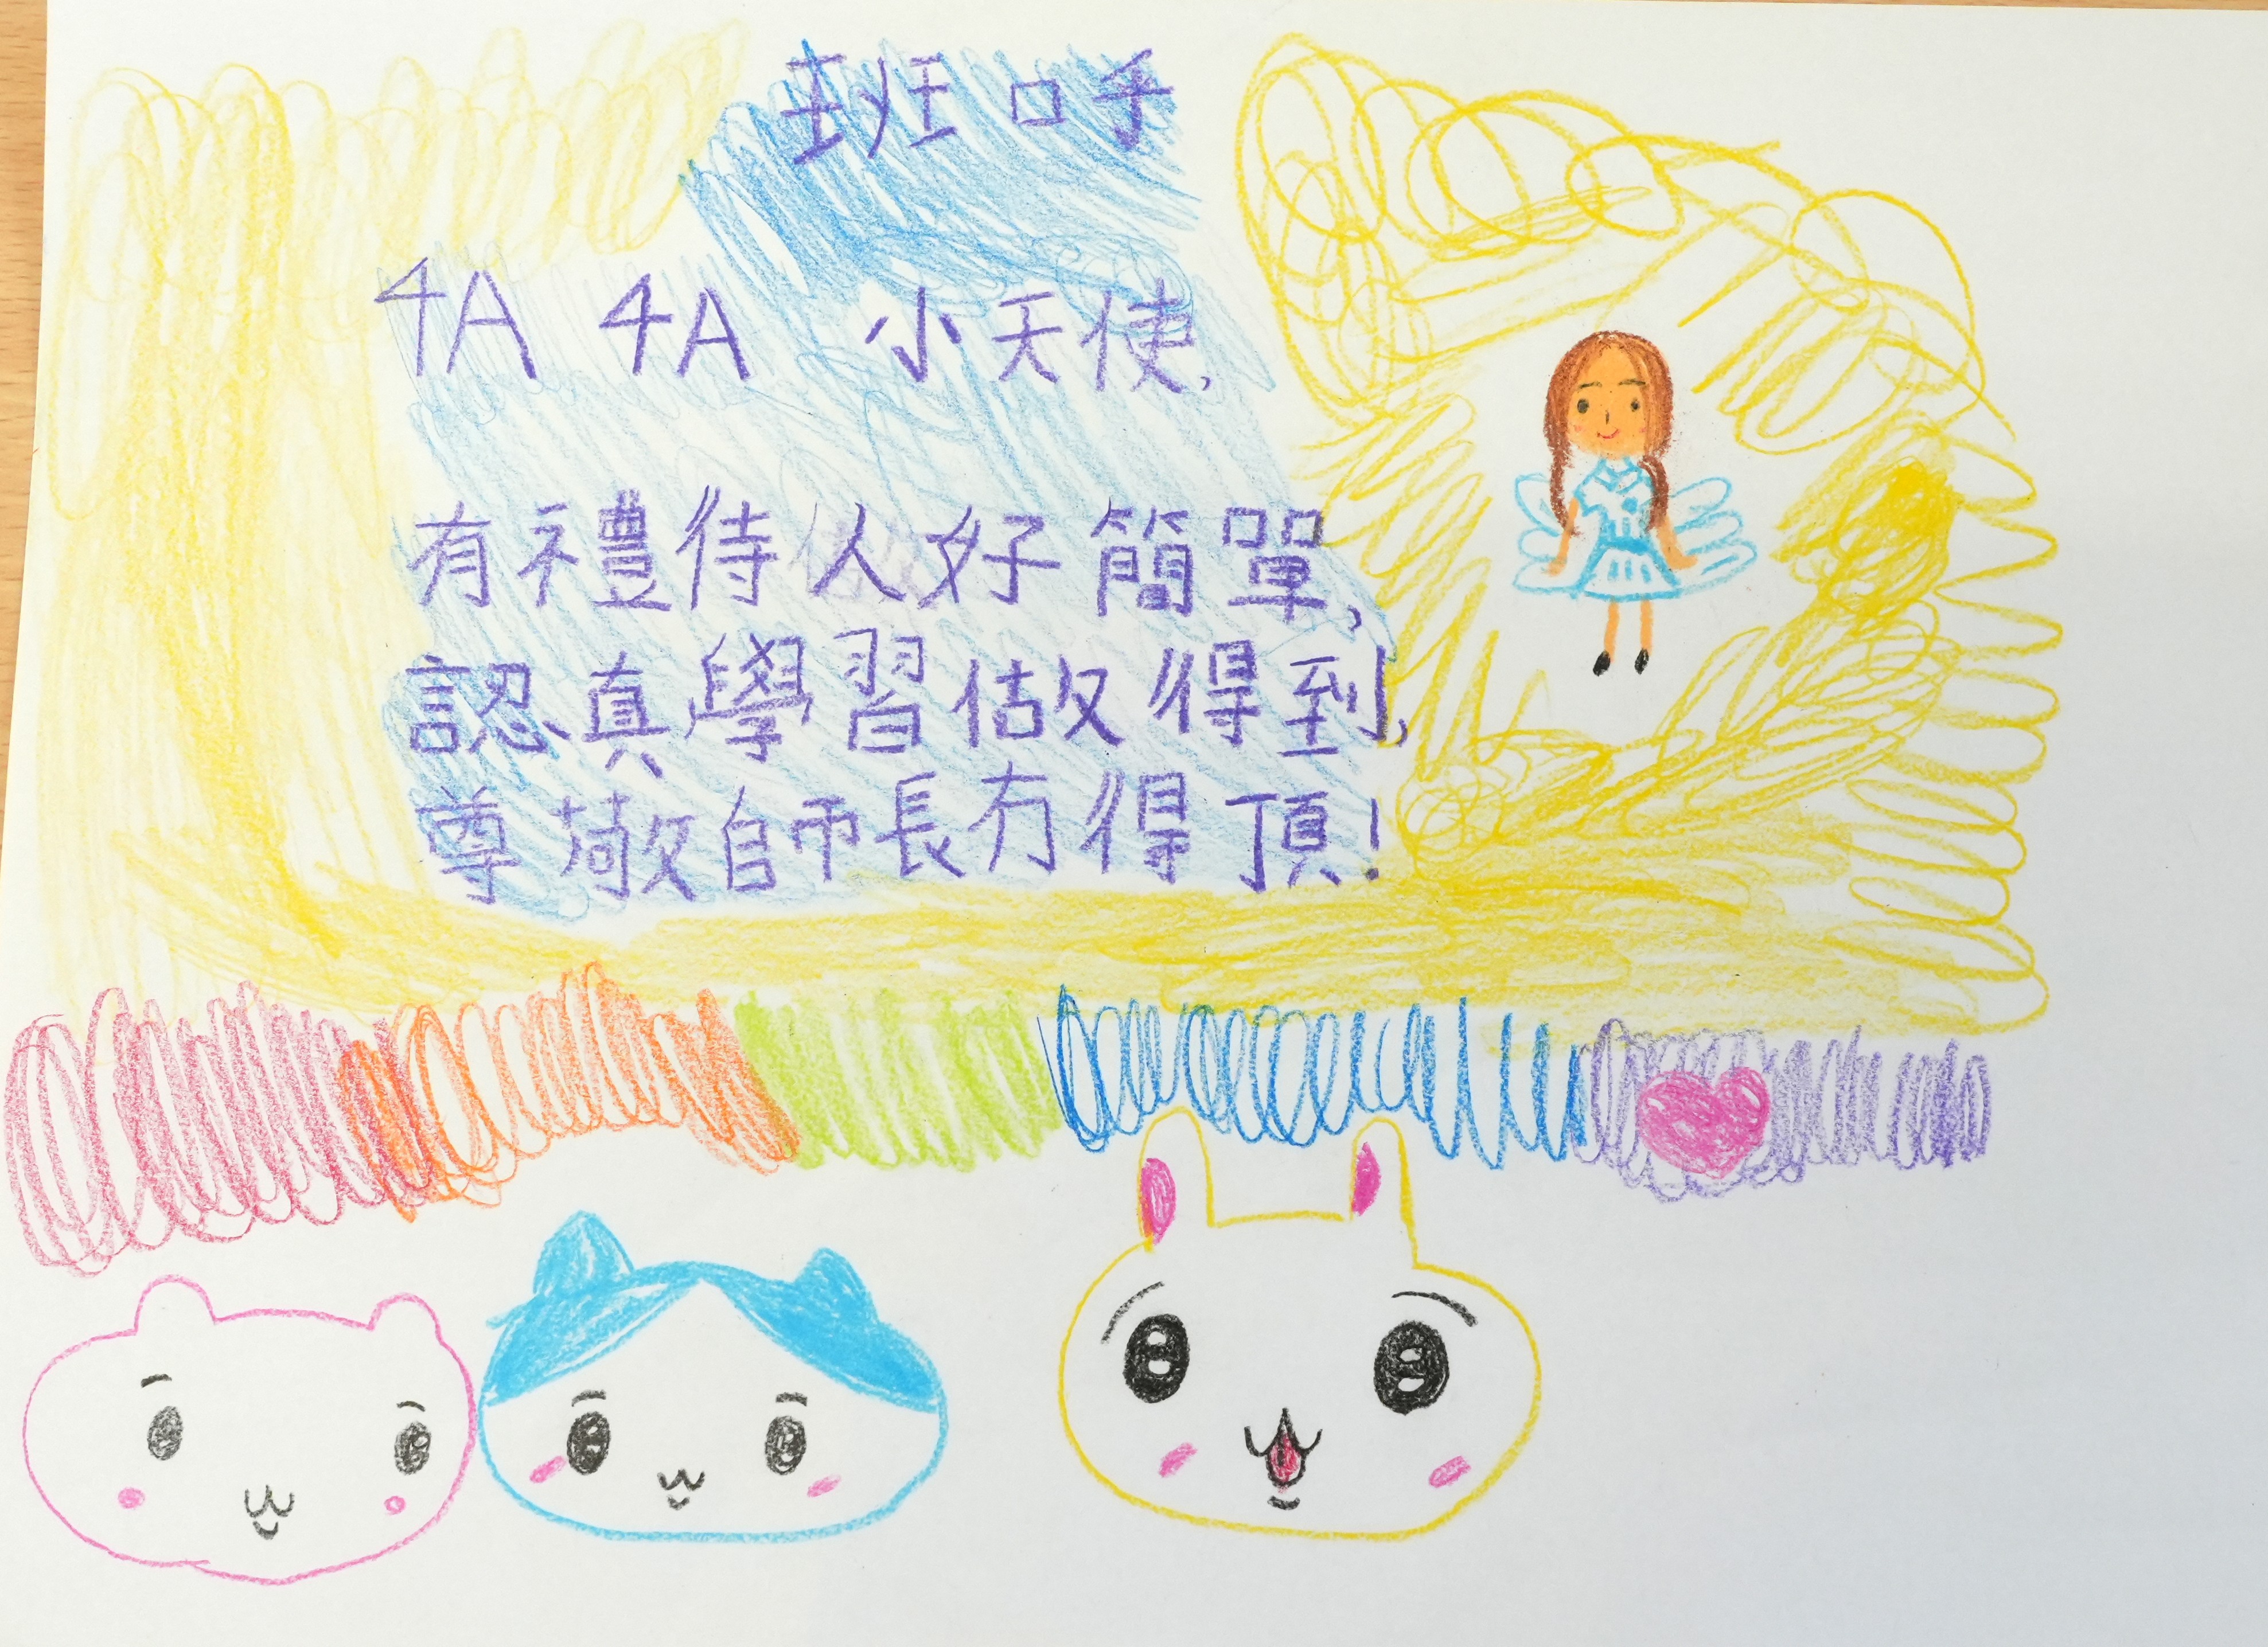 班口乎
4A 4A 小天使,
有禮待人好簡單,
認真學習做得到,
尊敬師長冇得頂!